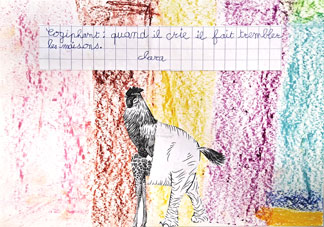 Cogiphant : quand il crie il fait trembler
les maisons.
Clara